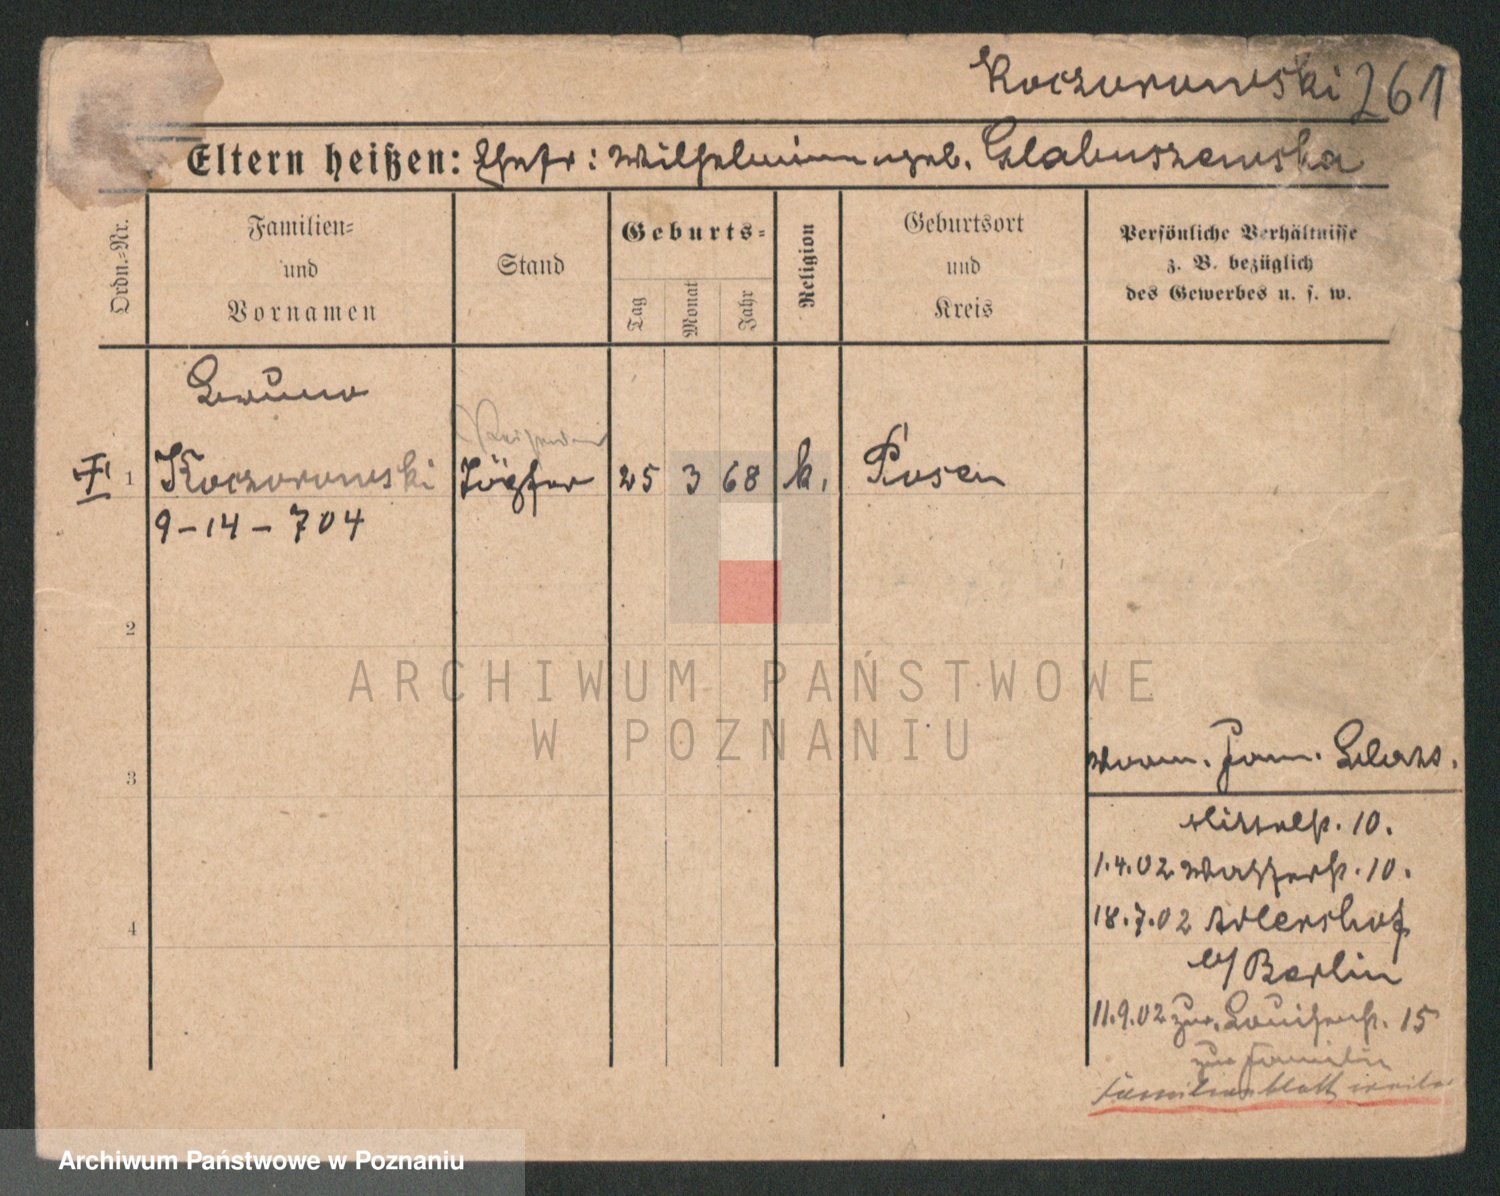 Koczorowski 261
Eltern heißen: Ehefr: Wilhelmine geb. Glabuszewska
Ordn.-Nr.
Familien-
und
Vornamen
Stand
Geburts-
Tag
Monat
Jahr
Religion
Geburtsort
und
Kreis
Persönliche Verhältnisse
z. B. bezüglich
des Gewerbes u. s. w.
Bruno
1 Koczorowski 25 3 68 k. Posen
9-14-704
2
ARCHIWUM PAŃSTWOWE
W POZNANIU
3
Ritterstr. 10.
1.4.02 Wasserstr. 10.
18.7.02 Adlershof
4
b/ Berlin
11.9.02 zur. Louisenstr. 15
zur Familie
Familienblatt
Archiwum Państwowe w Poznaniu